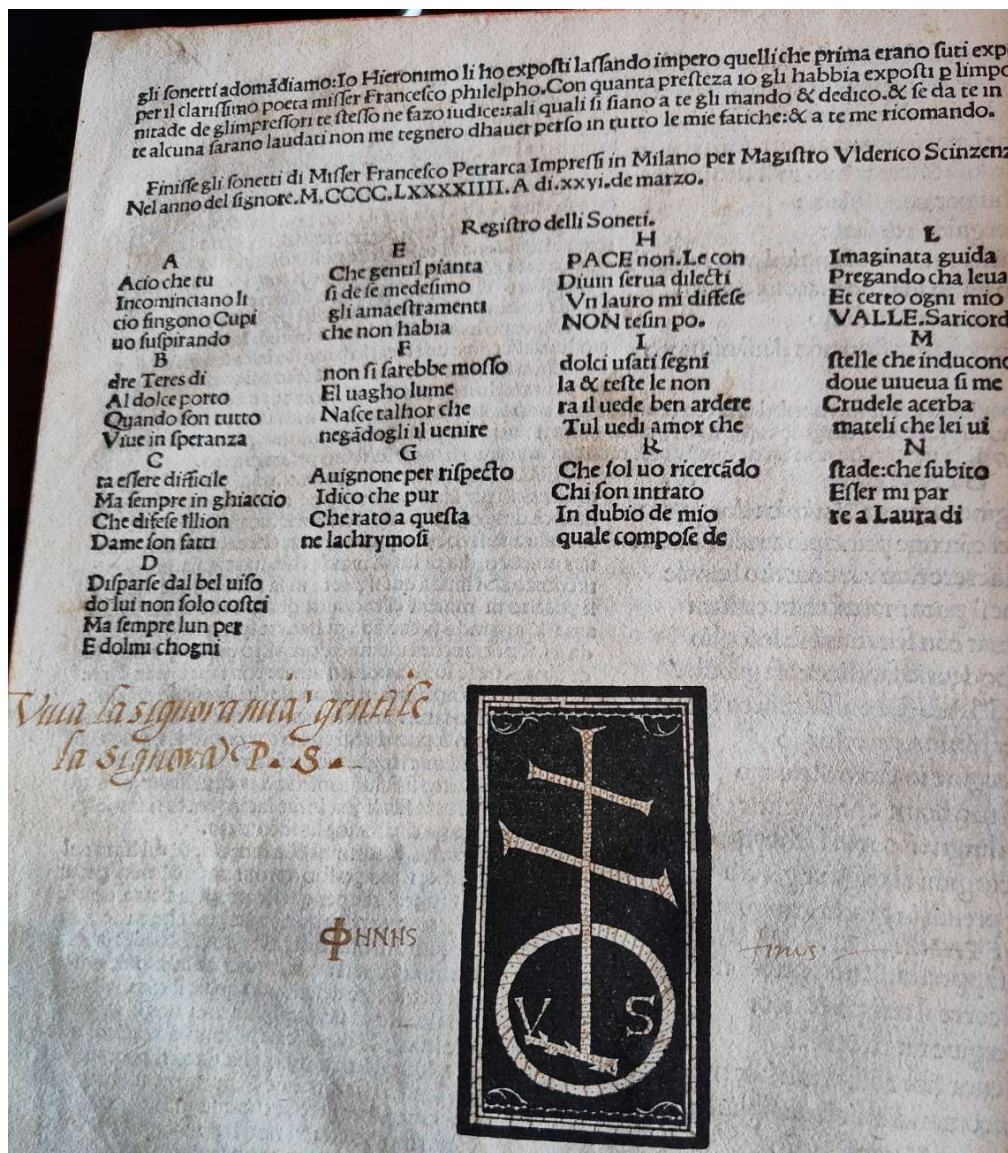 gli ſonetti adomãdiamo:Io Hieronimo li ho expoſti laſſando impero quelli che prima erano ſuti exp
per il clariſſimo poeta miſſer Franceſco philelpho.Con quanta preſteza io gli habbia expoſti ꝑ limpo
nitade de glimpreſſori te ſteſſo ne fazo iudice:tali quali ſi ſiano a te gli mando & dedico.& ſe da te in
te alcuna ſarano laudati non me tegnero dhauer perſo in tutto le mie fatiche:& a te me ricomando.
Finiſſe gli ſonetti di Miſſer Franceſco Petrarca Impreſſi in Milano per Magiſtro Vlderico Scinzenz
Nel anno del ſignore.M.CCCC.LXXXXIIII.A di.xxvi.de marzo.
Regiſtro delli Soneti.
A
Acio che tu
Incominciano li
cio fingono Cupi
uo ſuſpirando
B
dre Teres di
Al dolce porto
Quando ſon tutto
Viue in ſperanza
C
ra eſſere difficile
Ma ſempre in ghiaccio
Che difeſe Illion
Dame ſon fatti
D
Diſparſe dal bel uiſo
do lui non ſolo coſtei
Ma ſempre lun per
E dolmi chogni
E
Che gentil pianta
ſi de ſe medeſimo
gli amaeſtramenti
che non habia
F
non ſi ſarebbe moſſo
El uagho lume
Naſce talhor che
negãdogli il uenire
G
Auignone per riſpecto
Idico che pur
Che rato a queſta
ne lachrymoſi
H
PACE non.Le con
Diuin ſerua dilecti
Vn lauro mi diffeſe
NON teſin po.
I
dolci uſati ſegni
la & teſte le non
ra il uede ben ardere
Tul uedi amor che
K
Che ſol uo ricercãdo
Chi ſon intrato
In dubio de mio
quale compoſe de
L
Imaginata guida
Pregando cha leua
Et certo ogni mio
VALLE.Saricord
M
ſtelle che inducono
doue uiueua ſi me
Crudele acerba
mateli che lei ui
N
ſtade:che ſubito
Eſſer mi par
re a Laura di
Viua la signora mia gentile
la signora P. S.
ΦHNHS
finis
V S